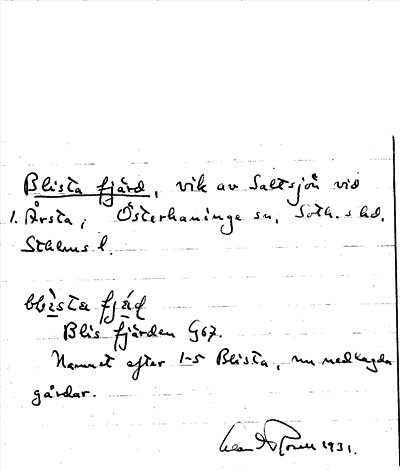 Blista fjärd, vik av Saltsjön vid
1. Årsta, Österhaninge sn, Soth. s hd.
Sthlms l.
blista fjäd
Blis fjärden G67.
Namnet efter 1-5 Blista, nu nedlagda
gårdar.
1931.